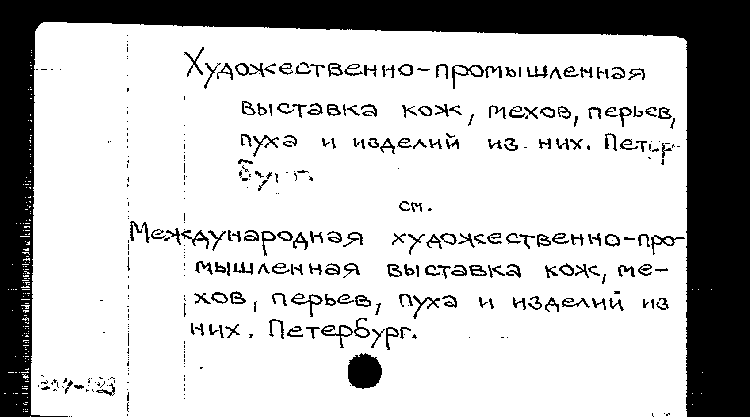 Художественно-промышленная
выставка кож, мехов, перьев,
пуха и изделий из них. Петер-
бург.
см.
Международная художественно-про-
мышленная выставка кож, ме-
хов, перьев, пуха и изделий из
них. Петербург.